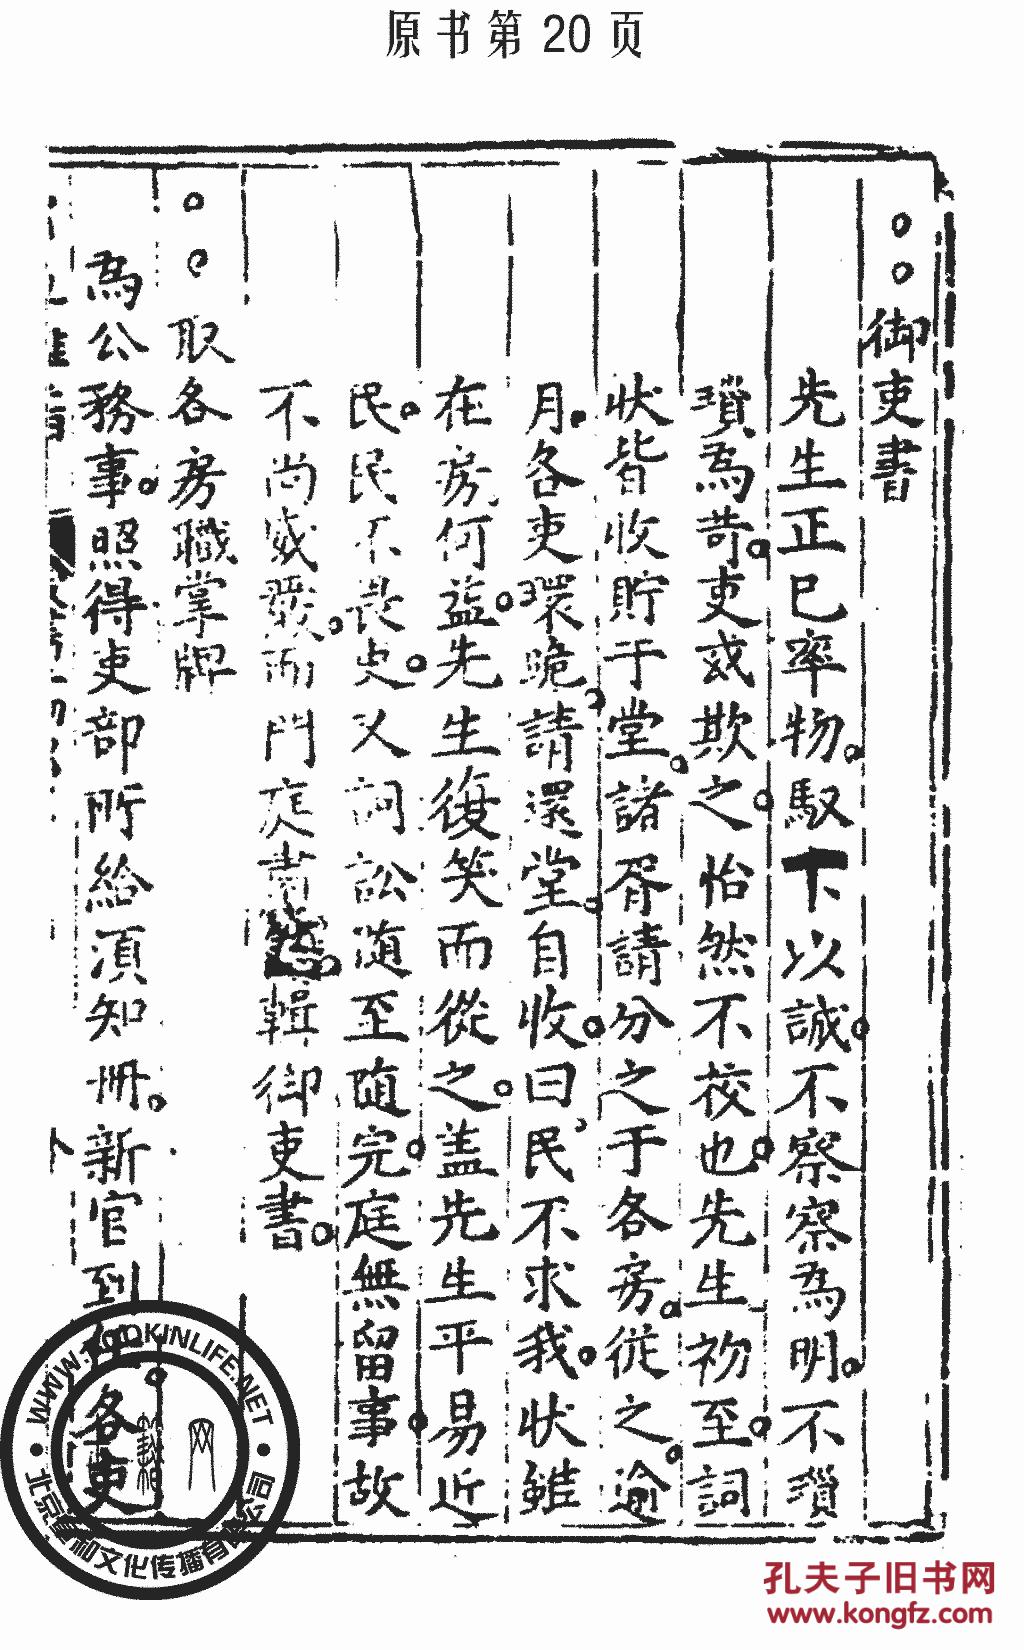 原书第20页
御吏書
先生正已率物馭下以誠不察察為明不瑣
瑣為苛吏或欺之怡然不校也先生初至詞
状皆收貯于堂諸胥請分之于各房従之逾
月各吏環跪請還堂自收曰民不求我状雖
在房何益先生復笑而從之盖先生平易近
民民不畏吏又詞訟随至随完庭無留事故
不尚威嚴而門庭肅 輯御吏書
取各房職掌牌
為公務事照得吏部所給須知冊新官到任各吏
WWW.BOOKINLIFE.NET
北京夏和文化传播有限公司
孔夫子旧书网
www.kongfz.com